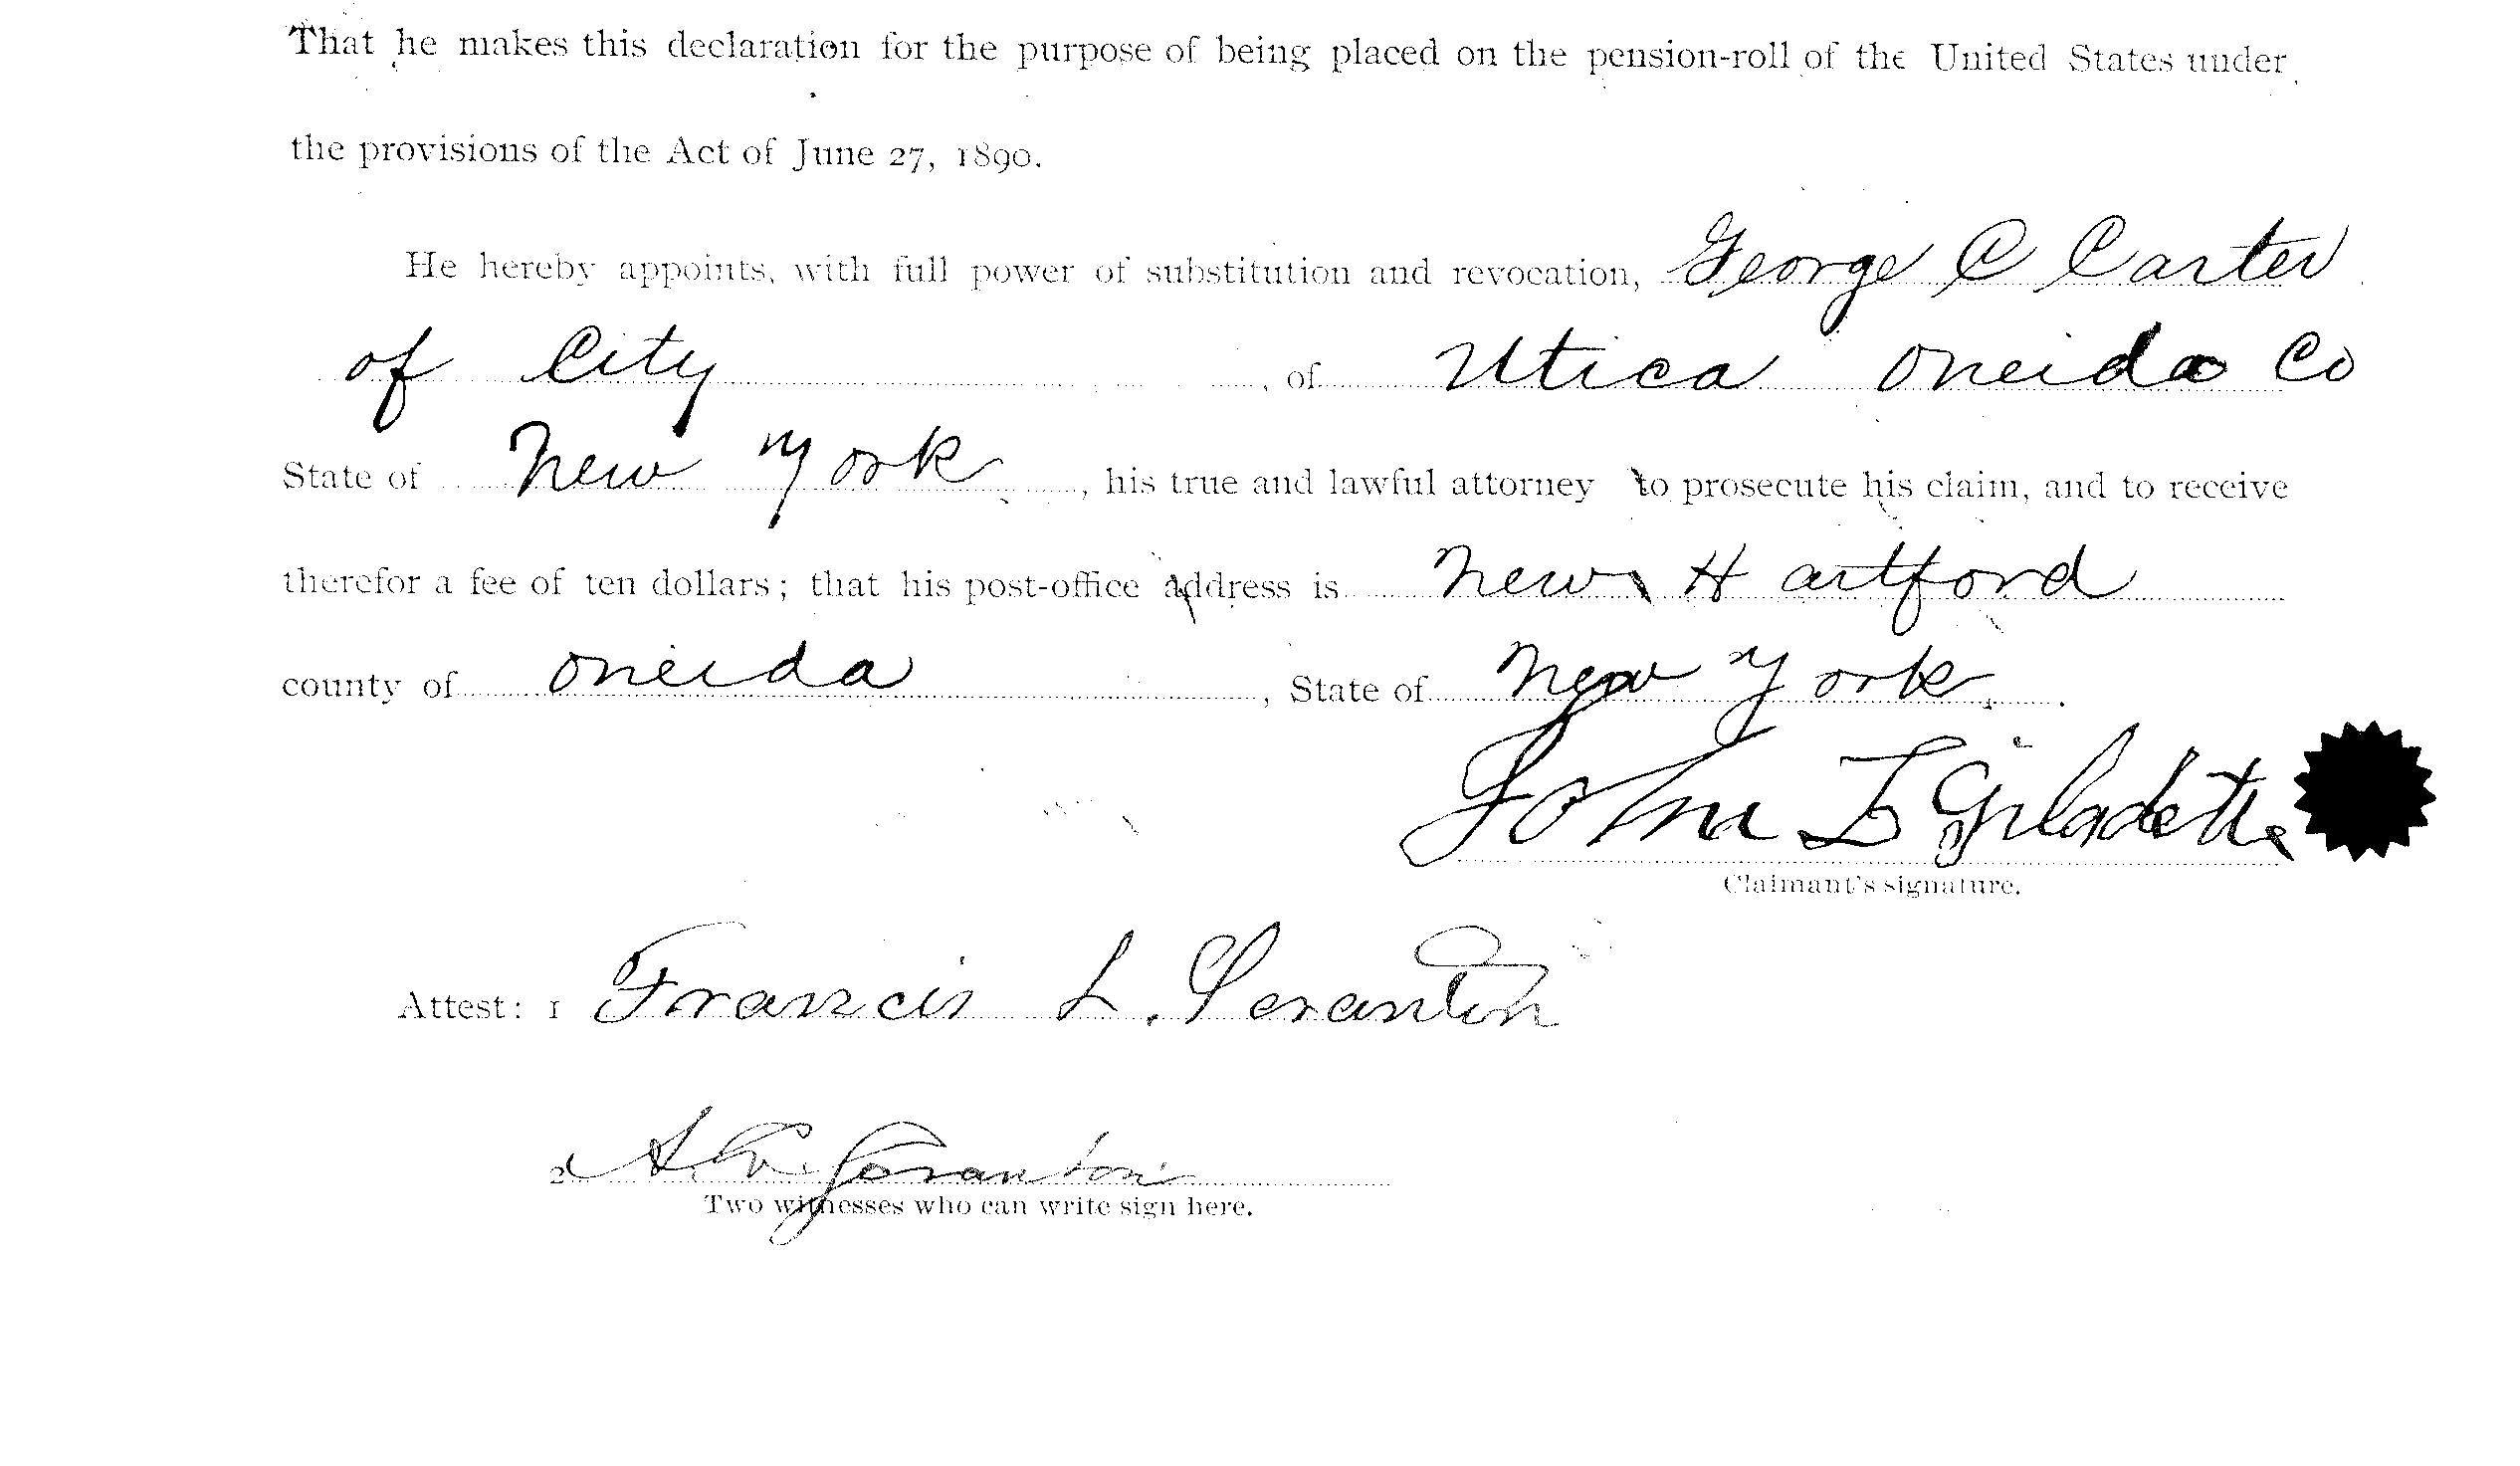 That he makes this declaration for the purpose of being placed on the pension-roll of the United States under
the provisions of the Act of June 27, 1890.
He hereby appoints, with full power of substitution and revocation, George C Carter
of City, of Utica Oneida Co
State of New York, his true and lawful attorney to prosecute his claim, and to receive
therefor a fee of ten dollars; that his post-office address is New Hartford
county of Oneida, State of New York.
John
Claimant's signature.
Attest: 1 Francis L. Scranton
2 Scranton
Two witnesses who can write sign here.